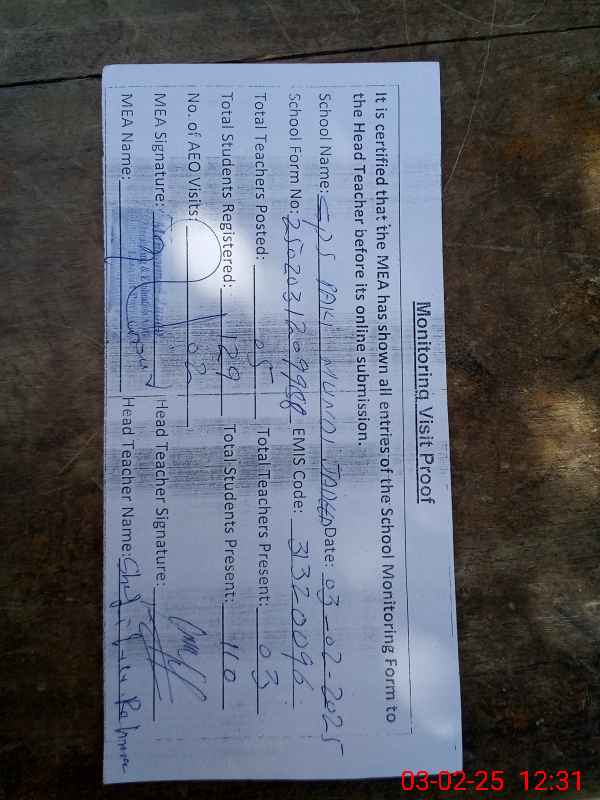 Monitoring Visit Proof
It is certified that the MEA has shown all entries of the School Monitoring Form to
the Head Teacher before its online submission.
School Name: GPS PAKI MUNDI Date: 03-02-2025
School Form No: EMIS Code: 31320096
Total Teachers Posted: 05 Total Teachers Present: 03
Total Students Registered: 129 Total Students Present: 110
No. of AEO Visits: 02
MEA Signature: Head Teacher Signature:
MEA Name: Head Teacher Name:
03-02-25 12:31